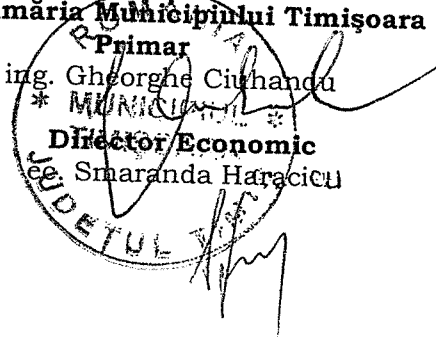 măria Municipiului Timişoara
Primar
ing. Gheorghe Ciuhandu
Director Economic
ec. Smaranda Haracicu
ROMÂNIA
* MUNICIPIUL *
JUDEŢUL